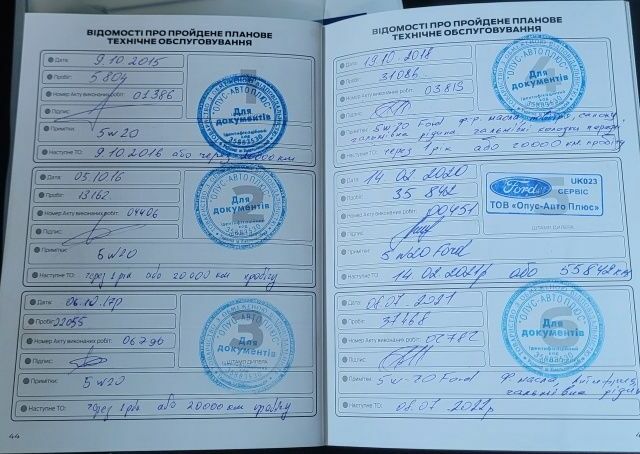 ВІДОМОСТІ ПРО ПРОЙДЕНЕ ПЛАНОВЕ
ТЕХНІЧНЕ ОБСЛУГОВУВАННЯ
Дата: 9.10.2015
Пробіг: 5804
Номер Акту виконаних робіт: 01386
Підпис:
Примітки: 5w20
Наступне ТО: 9.10.2016 або через 20000 км
1
"ОПУС-АВТО ПЛЮС"
Для
документів
Ідентифікаційний
код
Дата: 05.10.16
Пробіг: 13162
Номер Акту виконаних робіт: 04406
Підпис:
Примітки: 5w20
Наступне ТО: через 1 рік або 20000 км пробігу
2
"ОПУС-АВТО ПЛЮС"
Для
документів
Ідентифікаційний
код
Дата: 06.10.17р
Пробіг: 22055
Номер Акту виконаних робіт: 06290
Підпис:
Примітки: 5w20
Наступне ТО: через 1 рік або 20000 км пробігу
3
"ОПУС-АВТО ПЛЮС"
Для
документів
ШТАМП ДИЛЕРА
44
ВІДОМОСТІ ПРО ПРОЙДЕНЕ ПЛАНОВЕ
ТЕХНІЧНЕ ОБСЛУГОВУВАННЯ
Дата: 19.10.2018
Пробіг: 31086
Номер Акту виконаних робіт: 03813
Підпис:
Примітки: 5w20 Ford ф.р. масла, салону
гальмівна рідина гальмівні колодки
Наступне ТО: через 1 рік або 20000 км пробігу
4
"ОПУС-АВТО ПЛЮС"
Для
документів
Ідентифікаційний
код
Дата: 14.02.2020
Пробіг: 35842
Номер Акту виконаних робіт: 00451
Підпис:
Примітки: 5w20 Ford
Наступне ТО: 14.02.2021р або 55842 км
Ford
UK023
СЕРВІС
ТОВ «Опус-Авто Плюс»
ШТАМП ДИЛЕРА
Дата: 08.07.2021
Пробіг: 37468
Номер Акту виконаних робіт: 02782
Підпис:
Примітки: 5w-20 Ford ф. масла,
гальмівна рідина
Наступне ТО: 08.07.2022р
6
"ОПУС-АВТО ПЛЮС"
Для
документів
Ідентифікаційний
код